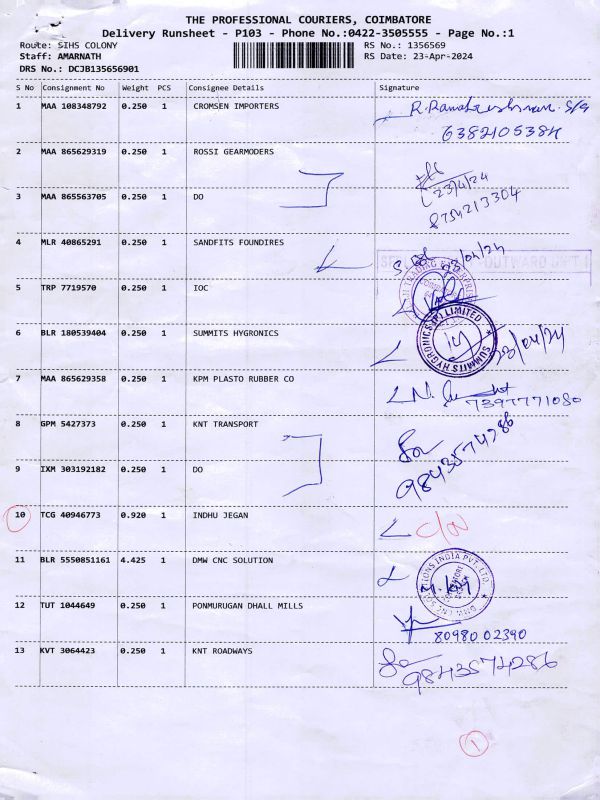 THE PROFESSIONAL COURIERS, COIMBATORE
Delivery Runsheet - P103 - Phone No.:0422-3505555 - Page No.:1
Route: SIHS COLONY RS No.: 1356569
Staff: AMARNATH RS Date: 23-Apr-2024
DRS No.: DCJB135656901
S No Consignment No Weight PCS Consignee Details Signature
1 MAA 108348792 0.250 1 CROMSEN IMPORTERS
6382105384
2 MAA 865629319 0.250 1 ROSSI GEARMODERS
23/4/24
3 MAA 865563705 0.250 1 DO
8754213304
4 MLR 40865291 0.250 1 SANDFITS FOUNDIRES
5 TRP 7719570 0.250 1 IOC
6 BLR 180539404 0.250 1 SUMMITS HYGRONICS
SUMMITS HYGRONICS (P) LIMITED
23/04/24
7 MAA 865629358 0.250 1 KPM PLASTO RUBBER CO
7397771080
8 GPM 5427373 0.250 1 KNT TRANSPORT
9 IXM 303192182 0.250 1 DO
9843574286
10 TCG 40946773 0.920 1 INDHU JEGAN
11 BLR 5550851161 4.425 1 DMW CNC SOLUTION
DMW CNC SOLUTIONS INDIA PVT. LTD.
12 TUT 1044649 0.250 1 PONMURUGAN DHALL MILLS
8098002390
13 KVT 3064423 0.250 1 KNT ROADWAYS
9843574286
1